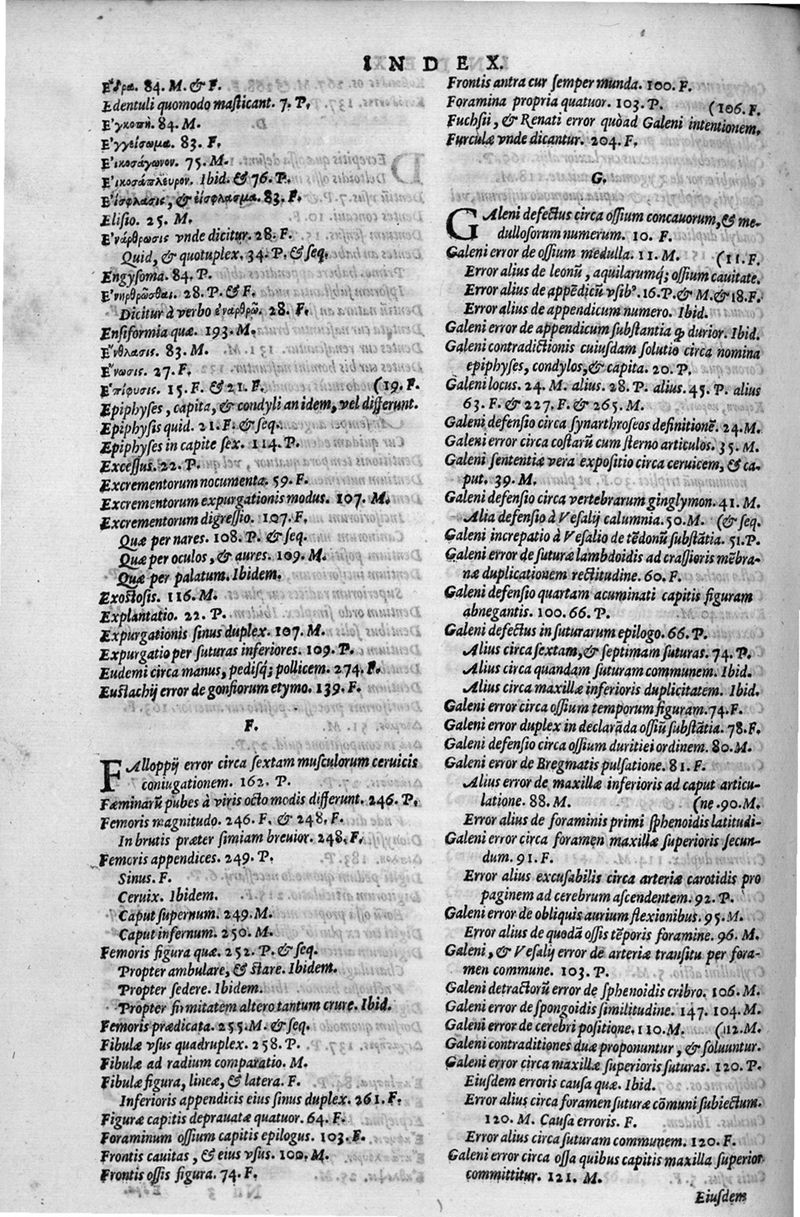 INDEX.
Ἕδρα. 84. M. & F.
Edentuli quomodo masticant. 7. P.
Ἐγκοπή. 84. M.
Ἐγγείσωμα. 83. F.
Εἰκοσάγωνον. 75. M.
Εἰκοσάπλευρον. Ibid. & 76. P.
Εἴσφλασις, & εἴσφλασμα. 83. F.
Elisio. 25. M.
Ἐνάρθρωσις vnde dicitur. 28. F.
Quid, & quotuplex. 34. P. & seq.
Engysoma. 84. P.
Ἐνηρθρῶσθαι. 28. P. & F.
Dicitur à verbo ἐναρθρῶ. 28. F.
Ensiformia quæ. 193. M.
Ἔνθλασις. 83. M.
Ἕνωσις. 27. F.
Ἐπίφυσις. 15. F. & 21. F. (19. F.
Epiphyses, capita, & condyli an idem, vel differunt.
Epiphysis quid. 21. F. & seq.
Epiphyses in capite sex. 114. P.
Excessus. 22. P.
Excrementorum nocumenta. 59. F.
Excrementorum expurgationis modus. 107. M.
Excrementorum digressio. 107. F.
Quæ per nares. 108. P. & seq.
Quæ per oculos, & aures. 109. M.
Quæ per palatum. Ibidem.
Exostosis. 116. M.
Explantatio. 22. P.
Expurgationis sinus duplex. 107. M.
Expurgatio per suturas inferiores. 109. P.
Eudemi circa manus, pedisq; pollicem. 274. F.
Eustachij error de gonfiorum etymo. 139. F.
F.
FAlloppij error circa sextam musculorum ceruicis
coniugationem. 162. P.
Fæminarũ pubes à viris octo modis differunt. 246. P.
Femoris magnitudo. 246. F. & 248. F.
In brutis præter simiam breuior. 248. F.
Femoris appendices. 249. P.
Sinus. F.
Ceruix. Ibidem.
Caput supernum. 249. M.
Caput infernum. 250. M.
Femoris figura quæ. 252. P. & seq.
Propter ambulare, & stare. Ibidem.
Propter sedere. Ibidem.
Propter firmitatem altero tantum crure. Ibid.
Femoris prædicata. 255. M. & seq.
Fibulæ vsus quadruplex. 258. P.
Fibulæ ad radium comparatio. M.
Fibulæ figura, lineæ, & latera. F.
Inferioris appendicis eius sinus duplex. 261. F.
Figuræ capitis deprauatæ quatuor. 64. F.
Foraminum ossium capitis epilogus. 103. F.
Frontis cauitas, & eius vsus. 100. M.
Frontis ossis figura. 74. F.
Frontis antra cur semper munda. 100. F.
Foramina propria quatuor. 103. P. (106. F.
Fuchsii, & Renati error quòad Galeni intentionem.
Furculæ vnde dicantur. 204. F.
G.
GAleni defectus circa ossium concauorum, & me-
dullosorum numerum. 10. F.
Galeni error de ossium medulla. 11. M. (11. F.
Error alius de leonũ, aquilarumq; ossium cauitate.
Error alius de appẽdicũ vsib⁹. 16. P. & M. & 18. F.
Error alius de appendicum numero. Ibid.
Galeni error de appendicum substantia q̃ durior. Ibid.
Galeni contradictionis cuiusdam solutio circa nomina
epiphyses, condylos, & capita. 20. P.
Galeni locus. 24. M. alius. 28. P. alius. 45. P. alius
63. F. & 227. F. & 265. M.
Galeni defensio circa synarthroseos definitionẽ. 24. M.
Galeni error circa costarũ cum sterno articulos. 35. M.
Galeni sententiæ vera expositio circa ceruicem, & ca-
put. 39. M.
Galeni defensio circa vertebrarum ginglymon. 41. M.
Alia defensio à Vesalij calumnia. 50. M. (& seq.
Galeni increpatio à Vesalio de tẽdonũ substãtia. 51. P.
Galeni error de suturæ lambdoidis ad crassioris mẽbra-
næ duplicationem rectitudine. 60. F.
Galeni defensio quartam acuminati capitis figuram
abnegantis. 100. 66. P.
Galeni defectus in suturarum epilogo. 66. P.
Alius circa sextam, & septimam suturas. 74. P.
Alius circa quandam suturam communem. Ibid.
Alius circa maxillæ inferioris duplicitatem. Ibid.
Galeni error circa ossium temporum figuram. 74. F.
Galeni error duplex in declarãda ossiũ substãtia. 78. F.
Galeni defensio circa ossium duritiei ordinem. 80. M.
Galeni error de Bregmatis pulsatione. 81. F.
Alius error de maxillæ inferioris ad caput articu-
latione. 88. M. (ne. 90. M.
Error alius de foraminis primi sphenoidis latitudi-
Galeni error circa foramen maxillæ superioris secun-
dum. 91. F.
Error alius excusabilis circa arteriæ carotidis pro
paginem ad cerebrum ascendentem. 92. P.
Galeni error de obliquis aurium flexionibus. 95. M.
Error alius de quodã ossis tẽporis foramine. 96. M.
Galeni, & Vesalij error de arteriæ transitu per fora-
men commune. 103. P.
Galeni detractorũ error de sphenoidis cribro. 106. M.
Galeni error de spongoidis similitudine. 147. 104. M.
Galeni error de cerebri positione. 110. M. (112. M.
Galeni contraditiones duæ proponuntur, & soluuntur.
Galeni error circa maxillæ superioris suturas. 120. P.
Eiusdem erroris causa quæ. Ibid.
Error alius circa foramen suturæ cõmuni subiectum.
120. M. Causa erroris. F.
Error alius circa suturam communem. 120. F.
Galeni error circa ossa quibus capitis maxilla superior
committitur. 121. M.
Eiusdem